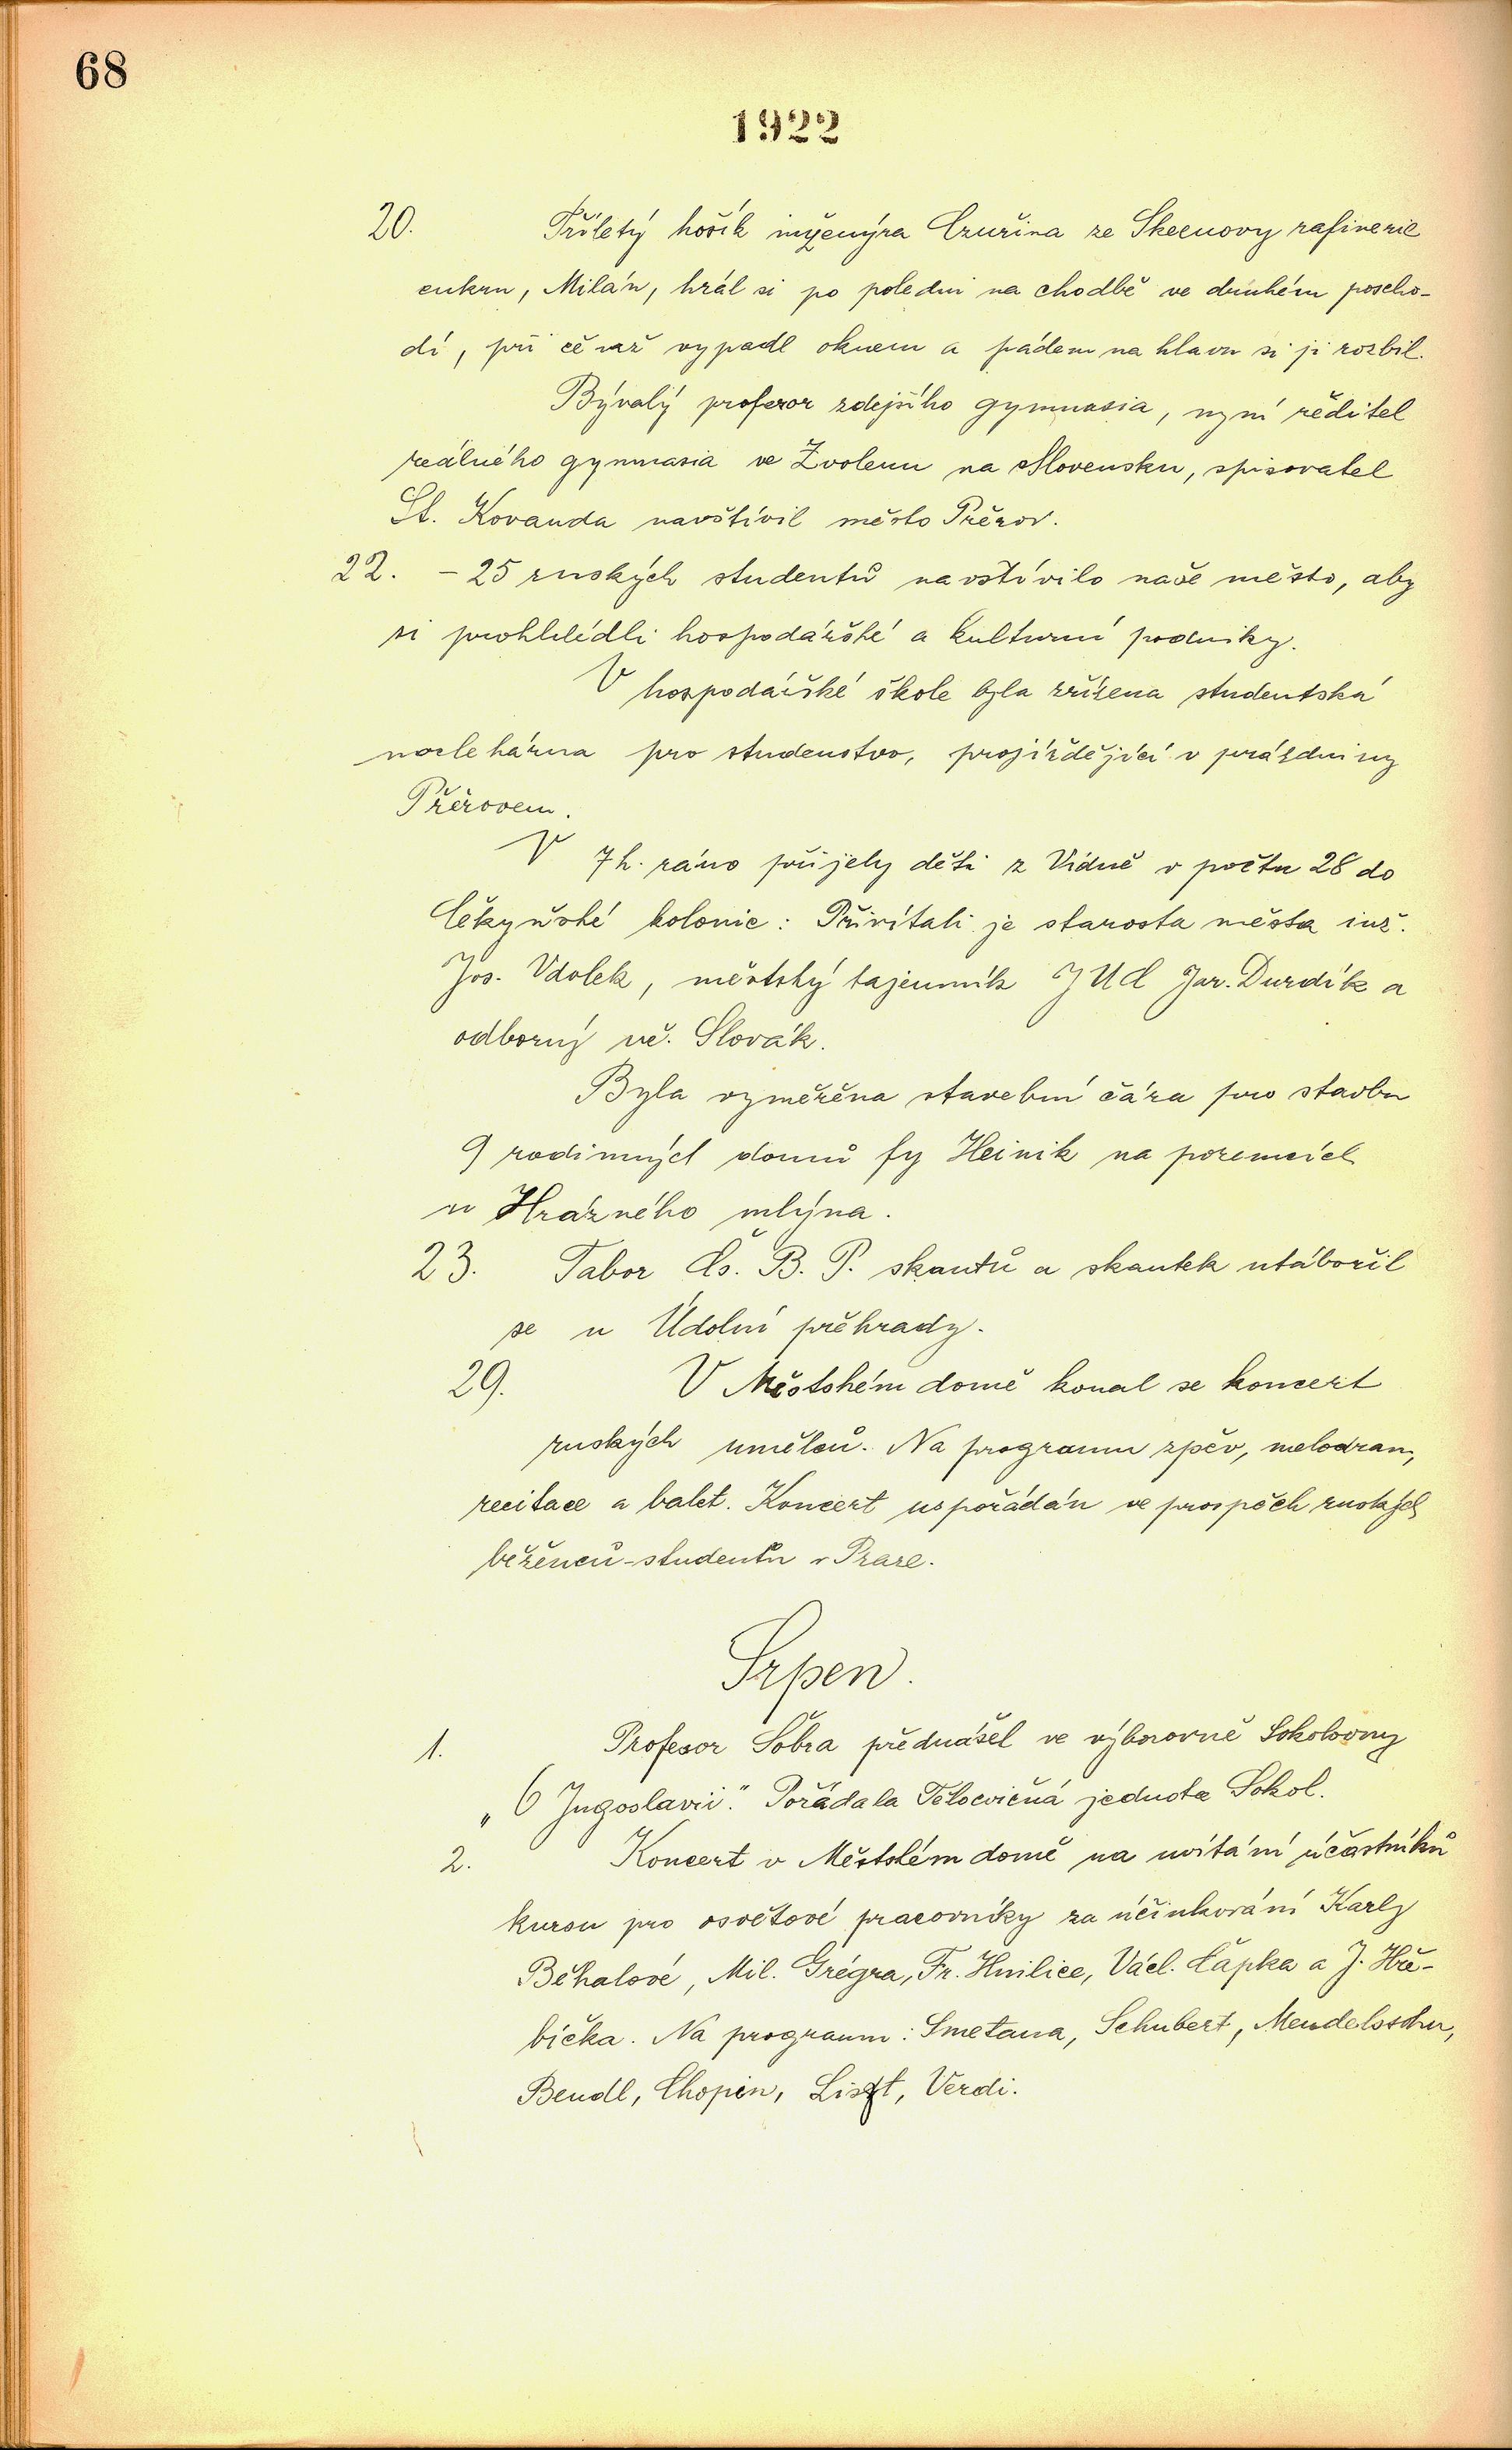 68
1922
20. Tříletý hošík inženýra Czuřina ze Skeenovy rafinerie
cukru, Milán, hrál si po poledni na chodbě ve druhém poscho-
dí, při čemž vypadl oknem a pádem na hlavu si ji rozbil.
Bývalý profesor zdejšího gymnasia, nyní ředitel
reálného gymnasia ve Zvolenu na Slovensku, spisovatel
St. Kovanda navštívil město Přerov.
22. – 25 ruských studentů navštívilo naše město, aby
si prohlédli hospodářské a kulturní podniky.
V hospodářské škole byla zřízena studentská
noclehárna pro studenstvo, projíždějící v prázdniny
Přerovem.
V 7 h. ráno přijely děti z Vídně v počtu 28 do
Čekyňské kolonie: Přivítali je starosta města inž.
Jos. Vdolek, městský tajemník JUC Jar. Durdík a
odborný uč. Slovák.
Byla vyměřena stavební čára pro stavbu
9 rodinných domů fy Heinik na pozemcích
u Hrázného mlýna.
23. Tabor Čs. B. P. skautů a skautek utábořil
se u Údolní přehrady.
29. V Městském domě konal se koncert
ruských umělců. Na programu zpěv, melodram,
recitace a balet. Koncert uspořádán ve prospěch ruských
běženců-studentů v Praze.
Srpen.
1. Profesor Sobra přednášel ve výborovně Sokolovny
„O Jugoslavii." Pořádala Tělocvičná jednota Sokol.
2. Koncert v Městském domě na uvítání účastníků
kursu pro osvětové pracovníky za účinkování Karly
Běhalové, Mil. Grégra, Fr. Hnilice, Václ. Čapka a J. Hře-
bíčka. Na programu: Smetana, Schubert, Mendelsohn,
Bendl, Chopin, Liszt, Verdi.